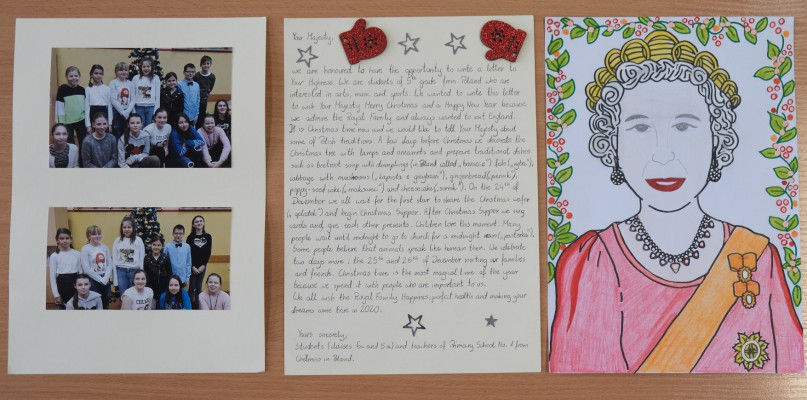 Your Majesty,
we are honoured to have the opportunity to write a letter to
Your Highness. We are students of 5th grade from Poland who are
interested in arts, music and sports. We wanted to write this letter
to wish Your Majesty Merry Christmas and a Happy New Year because
we admire the Royal Family and always wanted to visit England.
It is Christmas time now and we would like to tell Your Majesty about
some of Polish traditions. A few days before Christmas we decorate the
Christmas tree with lamps and ornaments and prepare traditional dishes
such as beetroot soup with dumplings (in Poland called „barszcz"), fish („ryba"),
cabbage with mushrooms („kapusta z grzybami"), gingerbread („piernik"),
poppy-seed cake („makowiec") and cheesecake („sernik"). On the 24th of
December we all wait for the first star to share the Christmas wafer
(„opłatek") and begin Christmas Supper. After Christmas Supper we sing
carols and give each other presents. Children love this moment. Many
people wait until midnight to go to church for a midnight mass („pasterka").
Some people believe that animals speak like human then. We celebrate
two days more: the 25th and 26th of December visiting our families
and friends. Christmas time is the most magical time of the year
because we spend it with people who are important to us.
We all wish the Royal Family Happiness, perfect health and making your
dreams come true in 2020.
Yours sincerely,
Students (classes 5a and 5b) and teachers of Primary School No. 1 from
Chełmno in Poland.